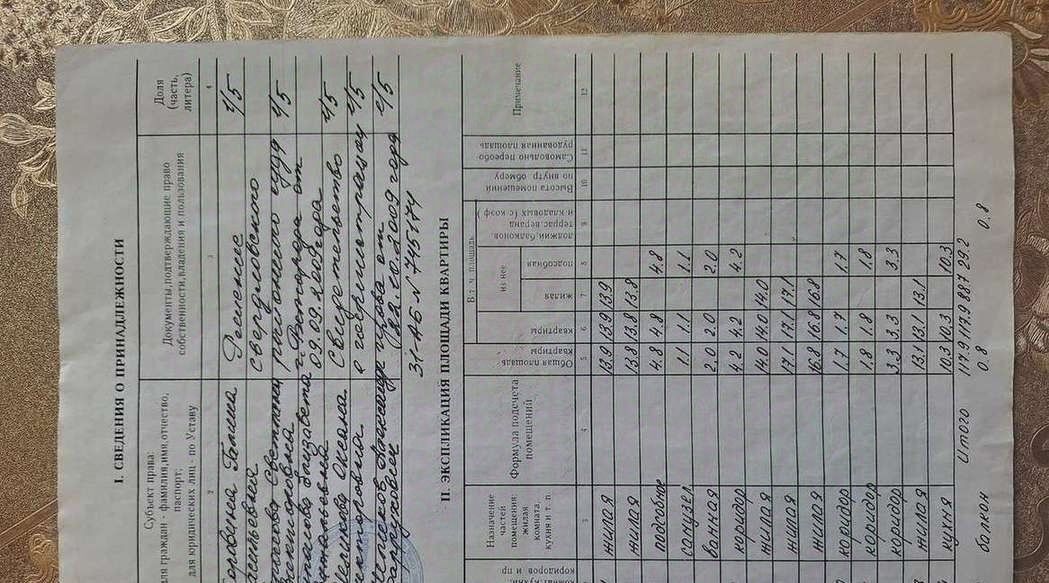 I. СВЕДЕНИЯ О ПРИНАДЛЕЖНОСТИ
Субъект права:
для граждан - фамилия, имя, отчество,
паспорт;
для юридических лиц - по Уставу
Документы, подтверждающие право
собственности, владения и пользования
Доля
(часть,
литера)
2 3 4
Головина Галина Решение 1/5
Васильевна Свердловского
Светлана районного суда 1/5
Белгорода от
Елизавета 09.09.2009 года
Анатольевна Свидетельство 1/5
Оксана о госрегистрации 1/5
Викторовна права от 1/5
Александр 22.10.2009 года
31-АБ № 745174
II. ЭКСПЛИКАЦИЯ ПЛОЩАДИ КВАРТИРЫ
Назначение
частей
помещения:
жилая
комната,
кухня и т. п.
Формула подсчета
помещений
Общая площадь
квартиры
В т. ч. площадь
квартиры
из нее
жилая
подсобная
лоджий, балконов,
террас, веранд
и кладовых (с коэф.)
Высота помещений
по внутр. обмеру
Самовольно переобо
рудованная площадь
Примечание
3 4 5 6 7 8 9 10 11 12
жилая 13.9 13.9 13.9
жилая 13.8 13.8 13.8
подсобное 4.8 4.8 4.8
санузел 1.1 1.1 1.1
ванная 2.0 2.0 2.0
коридор 4.2 4.2 4.2
жилая 14.0 14.0 14.0
жилая 17.1 17.1 17.1
жилая 16.8 16.8 16.8
коридор 1.7 1.7 1.7
коридор 1.8 1.8 1.8
коридор 3.3 3.3 3.3
жилая 13.1 13.1 13.1
кухня 10.3 10.3 10.3
Итого 117.9 117.9 88.7 29.2
балкон 0.8 0.8